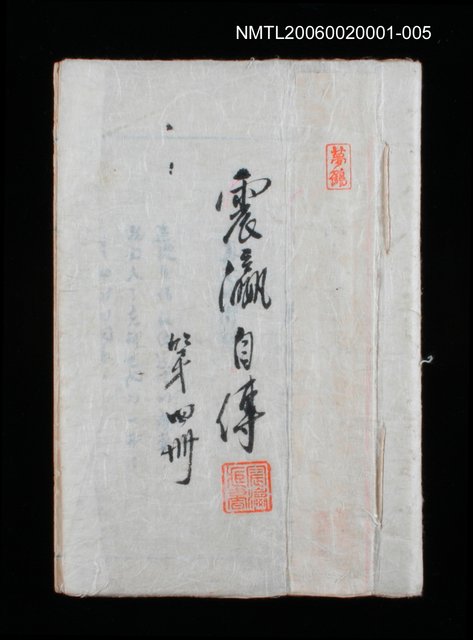 NMTL20060020001-005
夢鶴
震瀛自傳
第四冊